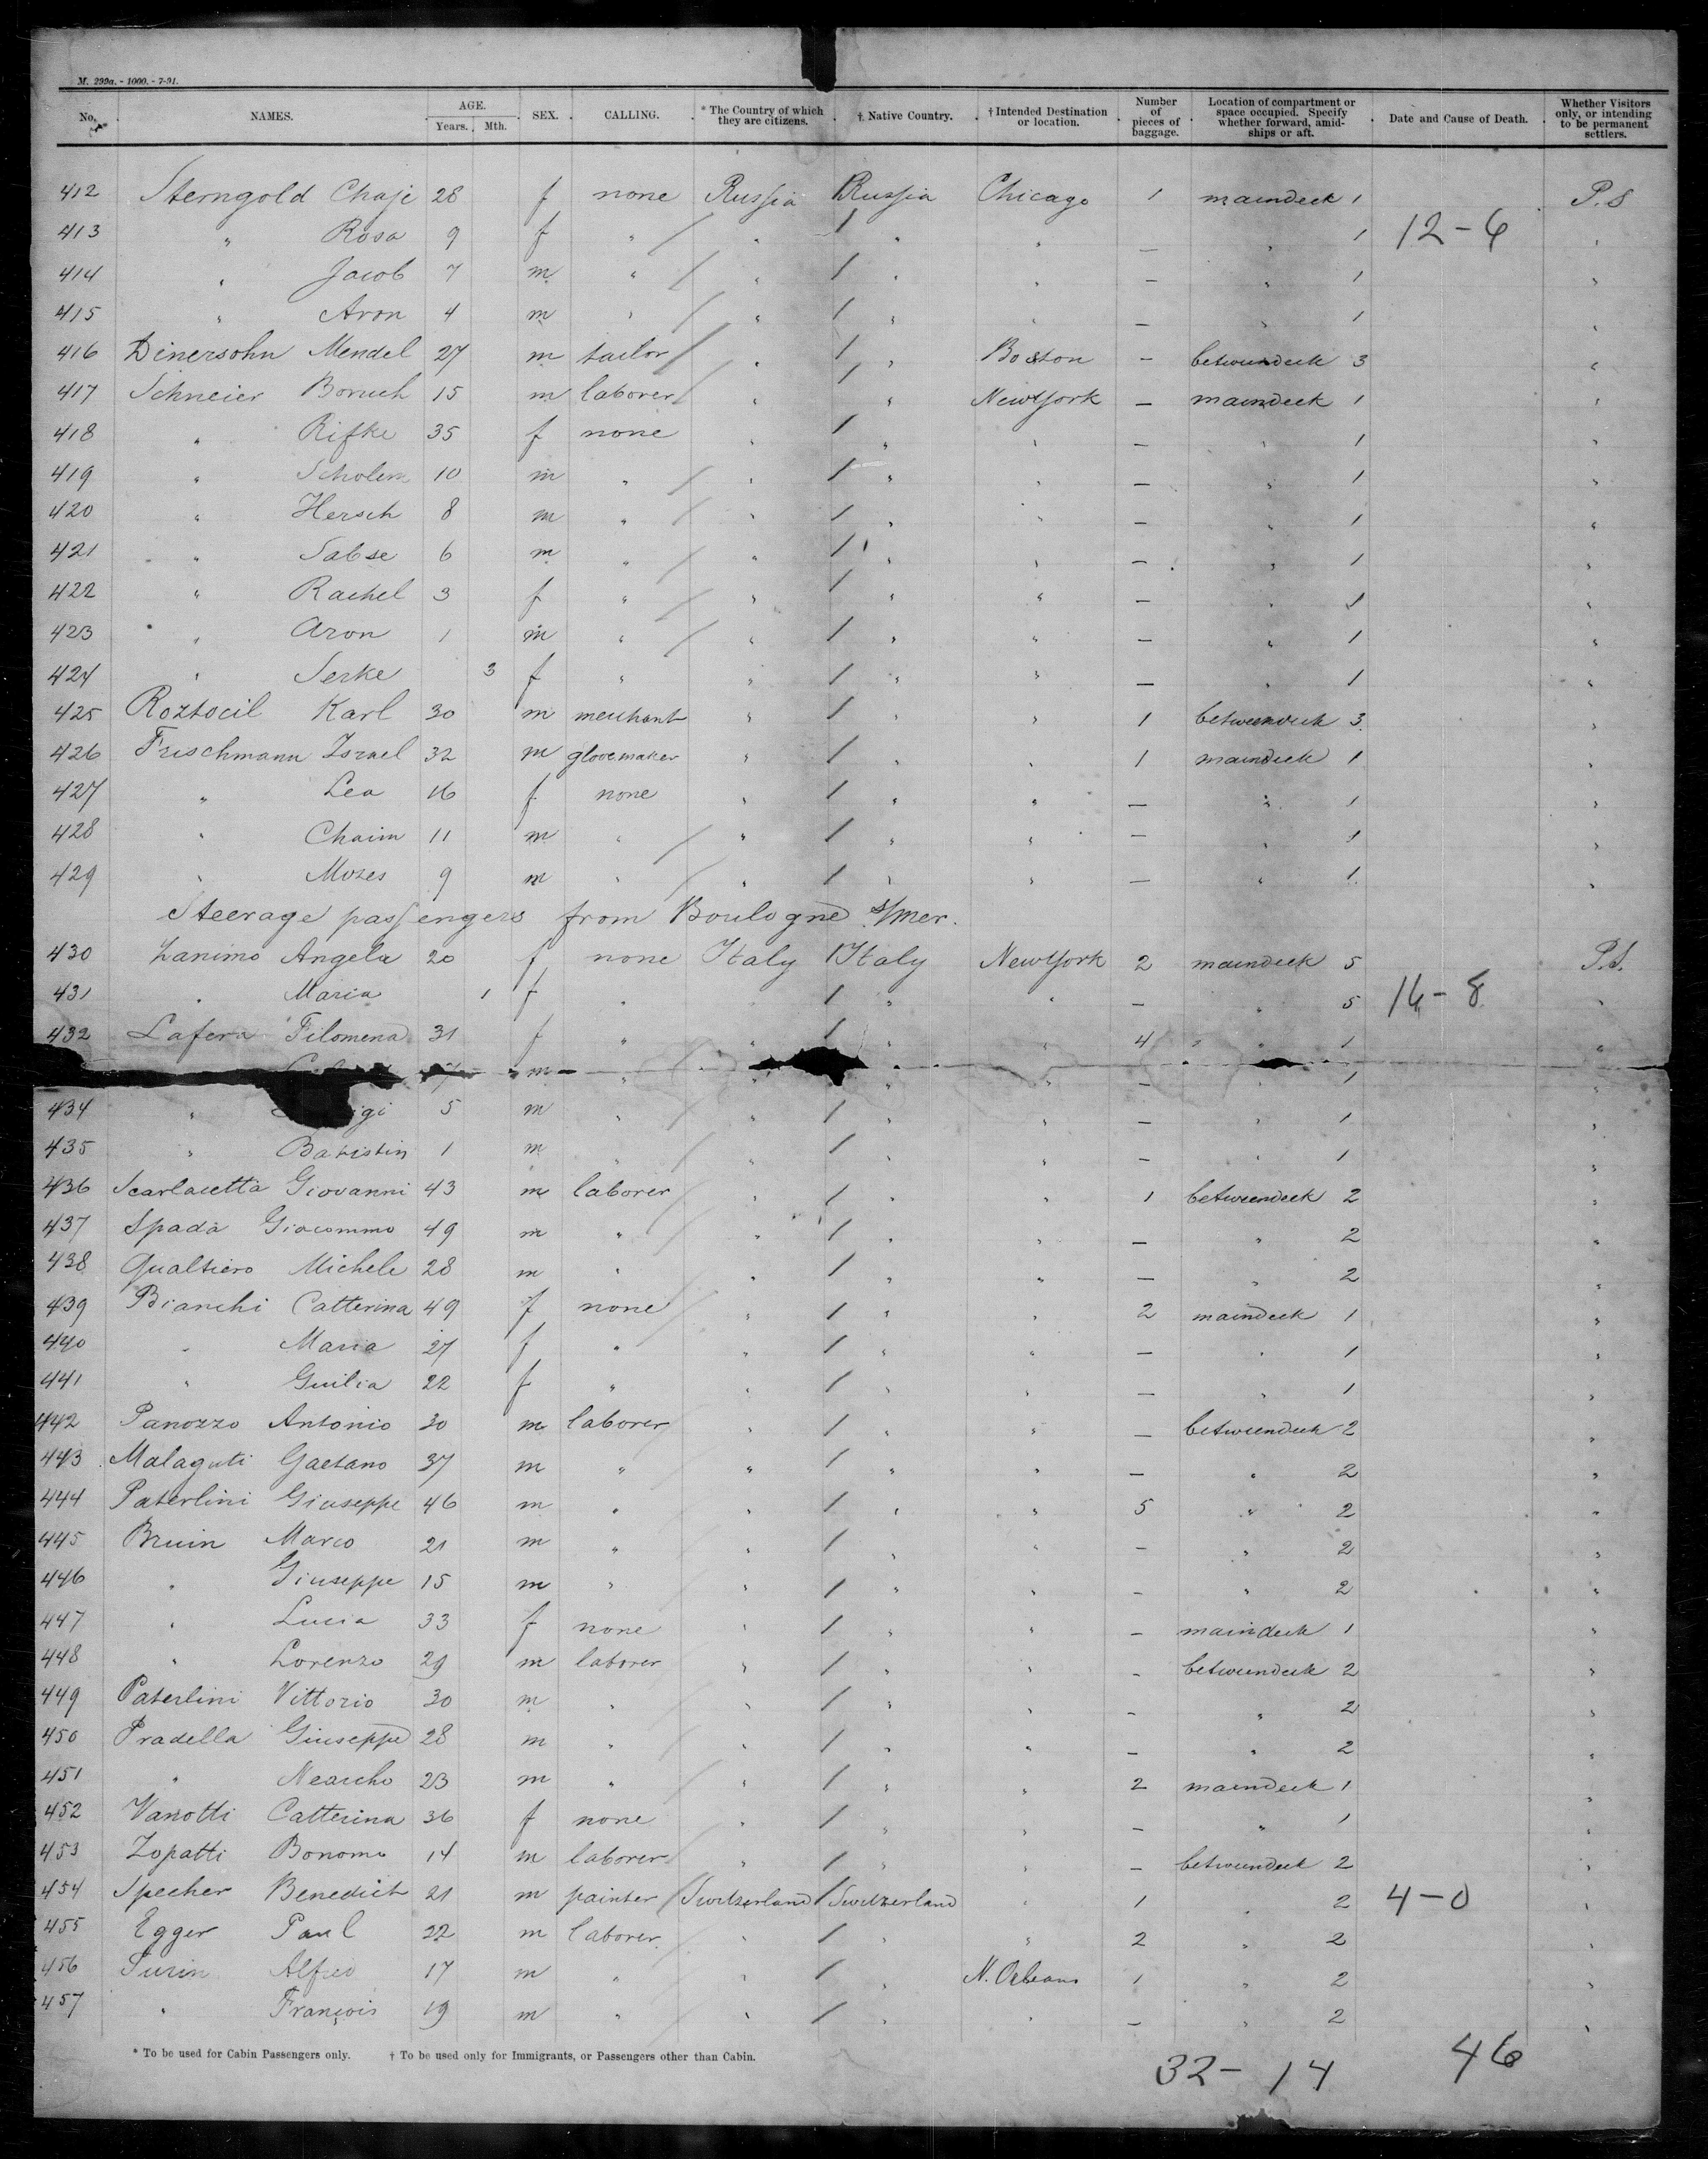 M. 299a. - 1000. - 7-91.
No. NAMES. AGE. Years. Mth. SEX. CALLING. * The Country of which they are citizens. † Native Country. † Intended Destination or location. Number of pieces of baggage. Location of compartment or space occupied. Specify whether forward, amidships or aft. Date and Cause of Death. Whether Visitors only, or intending to be permanent settlers.
412 Sterngold Chaje 28 f none Russia Russia Chicago 1 maindeck 1 P.S
413 " Rosa 9 f " / " / " " — " 1 12-6 "
414 " Jacob 7 m " / " / " " — " 1 "
415 " Aron 4 m " / " / " " — " 1 "
416 Dinersohn Mendel 27 m tailor / " / " Boston — betweendeck 3 "
417 Schneier Boruch 15 m laborer / " / " New York — maindeck 1 "
418 " Rifke 35 f none " / " " — " 1 "
419 " Scholem 10 m " / " / " " — " 1 "
420 " Hersch 8 m " / " / " " — " 1 "
421 " Sabse 6 m " / " / " " — " 1 "
422 " Rachel 3 f " / " / " " — " 1 "
423 " Aron 1 m " / " / " " — " 1 "
424 " Serke 3 f " " / " " — " 1 "
425 Roztocil Karl 30 m merchant " / " " 1 betweendeck 3 "
426 Frischmann Israel 32 m glovemaker " / " " 1 maindeck 1 "
427 " Lea 16 f none " / " " — " 1 "
428 " Chaim 11 m " / " / " " — " 1 "
429 " Moses 9 m " / " / " " — " 1 "
Steerage passengers from Boulogne s/mer.
430 Lanimo Angela 20 f none Italy / Italy New York 2 maindeck 5 P.S.
431 " Maria 1 f " / " " — " 5 16-8 "
432 Lafera Filomena 31 f " " / " " 4 " " 1 "
m " " " " — " 1 "
434 " igi 5 m " / " / " " — " 1 "
435 " Batistin 1 m " / " / " " — " 1 "
436 Scarlacetta Giovanni 43 m laborer " / " " 1 betweendeck 2 "
437 Spada Giacommo 49 m " " / " " — " 2 "
438 Qualtiero Michele 28 m " " / " " — " 2 "
439 Bianchi Catterina 49 f none / " / " " 2 maindeck 1 "
440 " Maria 27 f " " / " " — " 1 "
441 " Guilia 22 f " " / " " — " 1 "
442 Panozzo Antonio 30 m laborer " / " " — betweendeck 2 "
443 Malaguti Gaetano 37 m " " / " " — " 2 "
444 Paterlini Giuseppe 46 m " " / " " 5 " 2 "
445 Bruin Marco 21 m " / " / " " — " 2 "
446 " Giuseppe 15 m " / " / " " — " 2 "
447 " Lucia 33 f none " / " " — maindeck 1 "
448 " Lorenzo 29 m laborer " / " " — betweendeck 2 "
449 Paterlini Vittorio 30 m " / " / " " — " 2 "
450 Pradella Giuseppe 28 m " / " / " " — " 2 "
451 " Nearcho 23 m " / " / " " 2 maindeck 1 "
452 Vanotti Catterina 36 f none / " / " " — " 1 "
453 Zopatti Bonomo 14 m laborer " / " " — betweendeck 2 "
454 Specher Benedict 21 m painter / Switzerland / Switzerland " 1 " 2 4-0 "
455 Egger Paul 22 m laborer / " / " " 2 " 2 "
456 Surin Alfred 17 m " / " / " N. Orleans 1 " 2 "
457 " François 19 m " / " / " " — " 2 "
* To be used for Cabin Passengers only. † To be used only for Immigrants, or Passengers other than Cabin.
32- 14 46